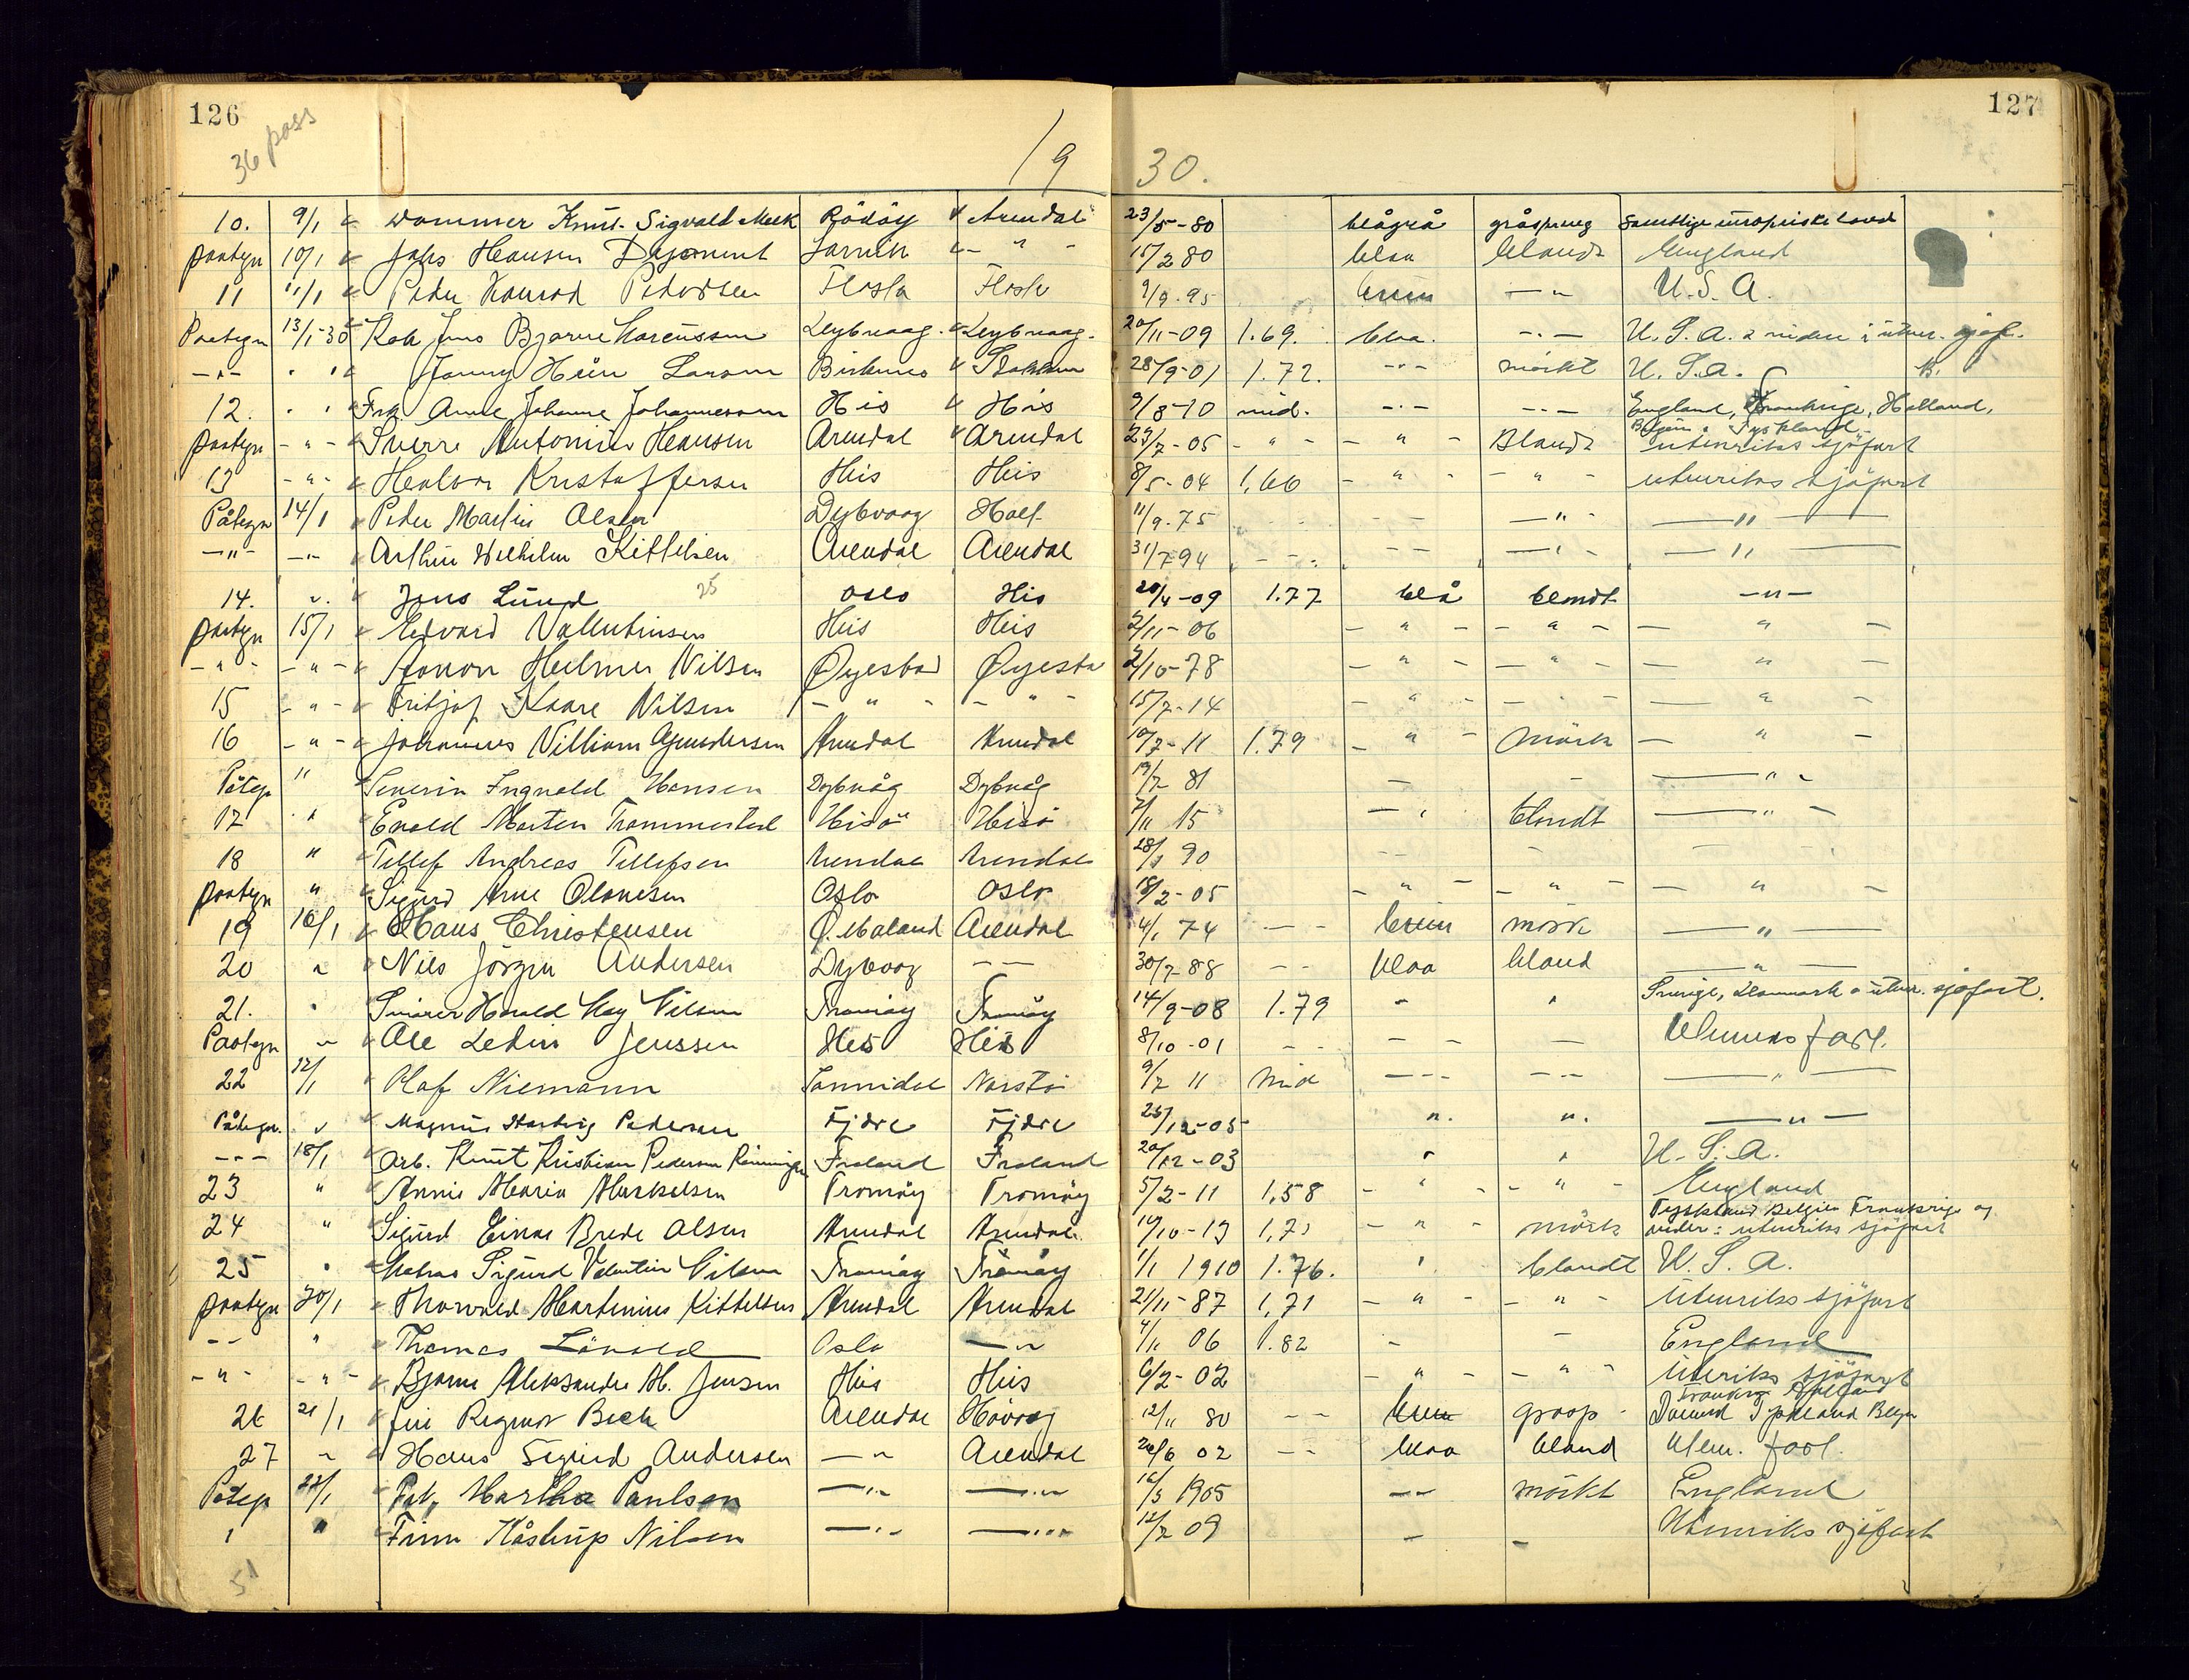 126
36 pass
19
30.
127
10. 9/1 Dommer Knut Sigvald Meek Rödöy Arendal 23/5-80 blågrå gråspreng Samtlige europeiske land
paategn 10/1 Hansen Larvik - " - 15/2 80 blaa blandt England
11 11/1 Peder Konrad Pedersen Flosta Flosta 9/9.95 brun U.S.A.
Paategn 13/1-30 Jens Bjarne Marcussen Dybvaag. Dybvaag. 20/11-09 1.69. blaa. -.- U.S.A. & videre i utenr. sjöf.
-.- Larsen Birkenes Stokken 28/9-01 1.72. --- mörkt U.S.A.
12. Frk Anne Johanne Johannessen His His 9/8-10 mid. -.- -.- England, Frankrige, Holland,
Belgien & Tyskland
paategn - " - Sverre Antonius Hansen Arendal Arendal 23/7-05 - " - - " - Blandt utenriks sjöfart
13 - " - Halvor Kristoffersen His His 8/5-04 1,66 - " - - " - utenriks sjöfart
Påtegn 14/1 Peder Martin Olsen Dybvaag Holt 11/9.75 - - - - - " - - " -
- " - - " - Arthur Wilhelm Kittelsen Arendal Arendal 31/7 94 - - - - - " - - " -
25
14. ". Jens Lund Oslo His 20/4-09 1.77 blå blondt - " -
paategn 15/1 Edvard Vallentinsen His His 2/11-06 - " - - " - - " -
- " - - " - Hilmer Nilsen Øyestad Øyestad 2/10-78 - " - - " - - " -
15 - " - Fritjof Kaare Nilsen - " - - " - 15/7-14 - " - - " - - " -
16 - " - Johannes Villiam Gundersen Arendal Arendal 10/7-11 1.79 - " - mörk - " -
Påtegn " Severin Ingvald Hansen Dybvåg Dybvåg 19/7 81 - - - " -
17 " Evald Morten Trommestad Hisö Hisö 7/11 15 - " blondt - " -
18 " Tellef Andreas Tellefsen Arendal Arendal 28/3 90 - - -
paategn " Sigurd Arne Olavesen Oslo Oslo 18/2-05 - " - - " - - " -
19 16/1 Hans Christensen Ö. Moland Arendal 4/1 74 - - brun mörk - " -
20 " Nils Jörgen Andersen Dybvaag - - 30/7 88 - - blaa bland - " -
21. " Harald May Nilsen Tromöy Tromöy 14/9-08 1.79 " " Sverige, Danmark & utenr. sjöfart.
Paategn " Ole Ledin Jenssen His His 8/10-01 - - - - - Utenriks fart.
22 17/1 Olaf Niemann Sannidal Narstö 9/7 11 Mid - - - - - - " -
Påtegn. " Magnus Hartvig Pedersen Fjære Fjære 25/12-05 ". ". - " -
--- 18/1 Arb. Knut Kristian Pedersen Rönningen Froland Froland 20/12-03 " " U.S.A.
23 " Annie Maria Markelsen Tromöy Tromöy 5/2-11 1,58 - " - - " - England
24 " Sigurd Einar Brede Olsen Arendal Arendal 14/10-13 1,71 - " - mörk Tyskland Belgien Frankrige og
videre: utenriks sjöfart
25 " Matros Sigurd Valentin Nilsen Tromöy Tromöy 1/1 1910 1.76. " blandt U.S.A.
paategn 20/1 Thorvald Martinius Kittelsen Arendal Arendal 21/11-87 1,71 - " - - " - Utenriks sjöfart
- - " Thomas Lövold Oslo - " 4/11 06 1.82 - - England
- " - - " - Bjarne Aleksander M. Jensen His His 6/2-02 - " - - " - Utenriks sjöfart
Frankrig Holland
26 21/1 Ragnar Bech Arendal Hövaag 12/11 80 - - brun graasp Tyskland Belgien
27 " Hans Sigurd Andersen - " Arendal 24/6 02 - - blaa bland Uten. fart.
Påtegn 22/1 Frk. Martha Paulsen - " - - " - 16/3 1905 - - mörkt England
" " Finn Kåstrup Nilsen - " - - " - 12/7 09 - - Utenriks sjöfart
51